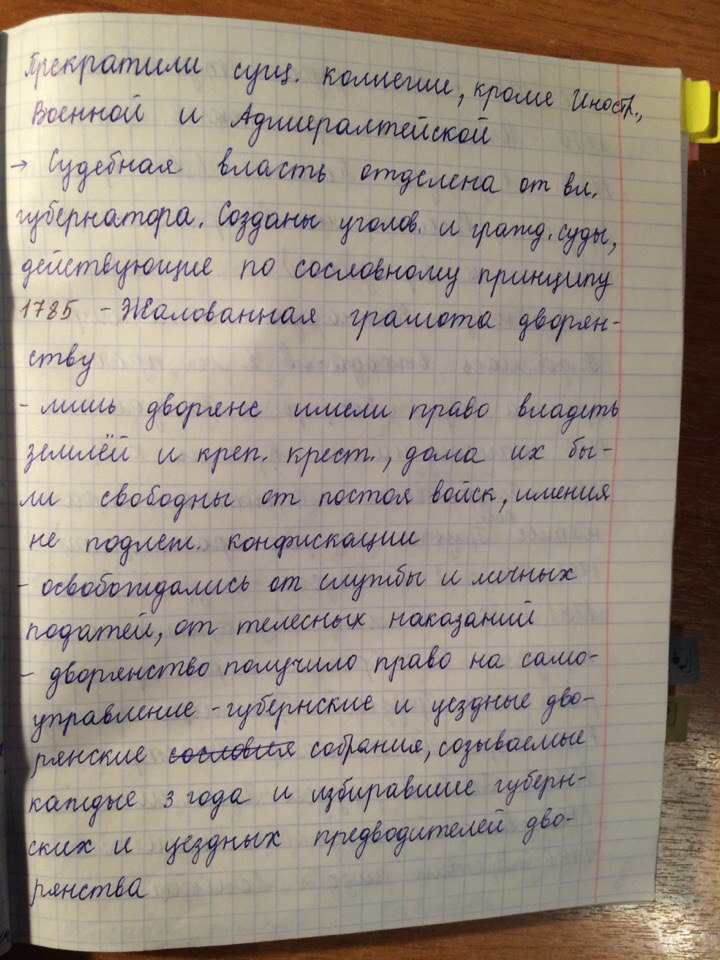 Прекратили сущ. коллегии, кроме Иностр.,
Военной и Адмиралтейской
→ Судебная власть отделена от вл.
губернатора. Созданы уголов. и гражд. суды,
действующие по сословному принципу
1785 - Жалованная грамота дворян-
ству
- лишь дворяне имели право владеть
землёй и креп. крест., дома их бы-
ли свободны от постоя войск, имения
не подлеж. конфискации
- освобождались от службы и личных
податей, от телесных наказаний
- дворянство получило право на само-
управление - губернские и уездные дво-
рянские сословия собрания, созываемые
каждые 3 года и избиравшие губерн-
ских и уездных предводителей дво-
рянства